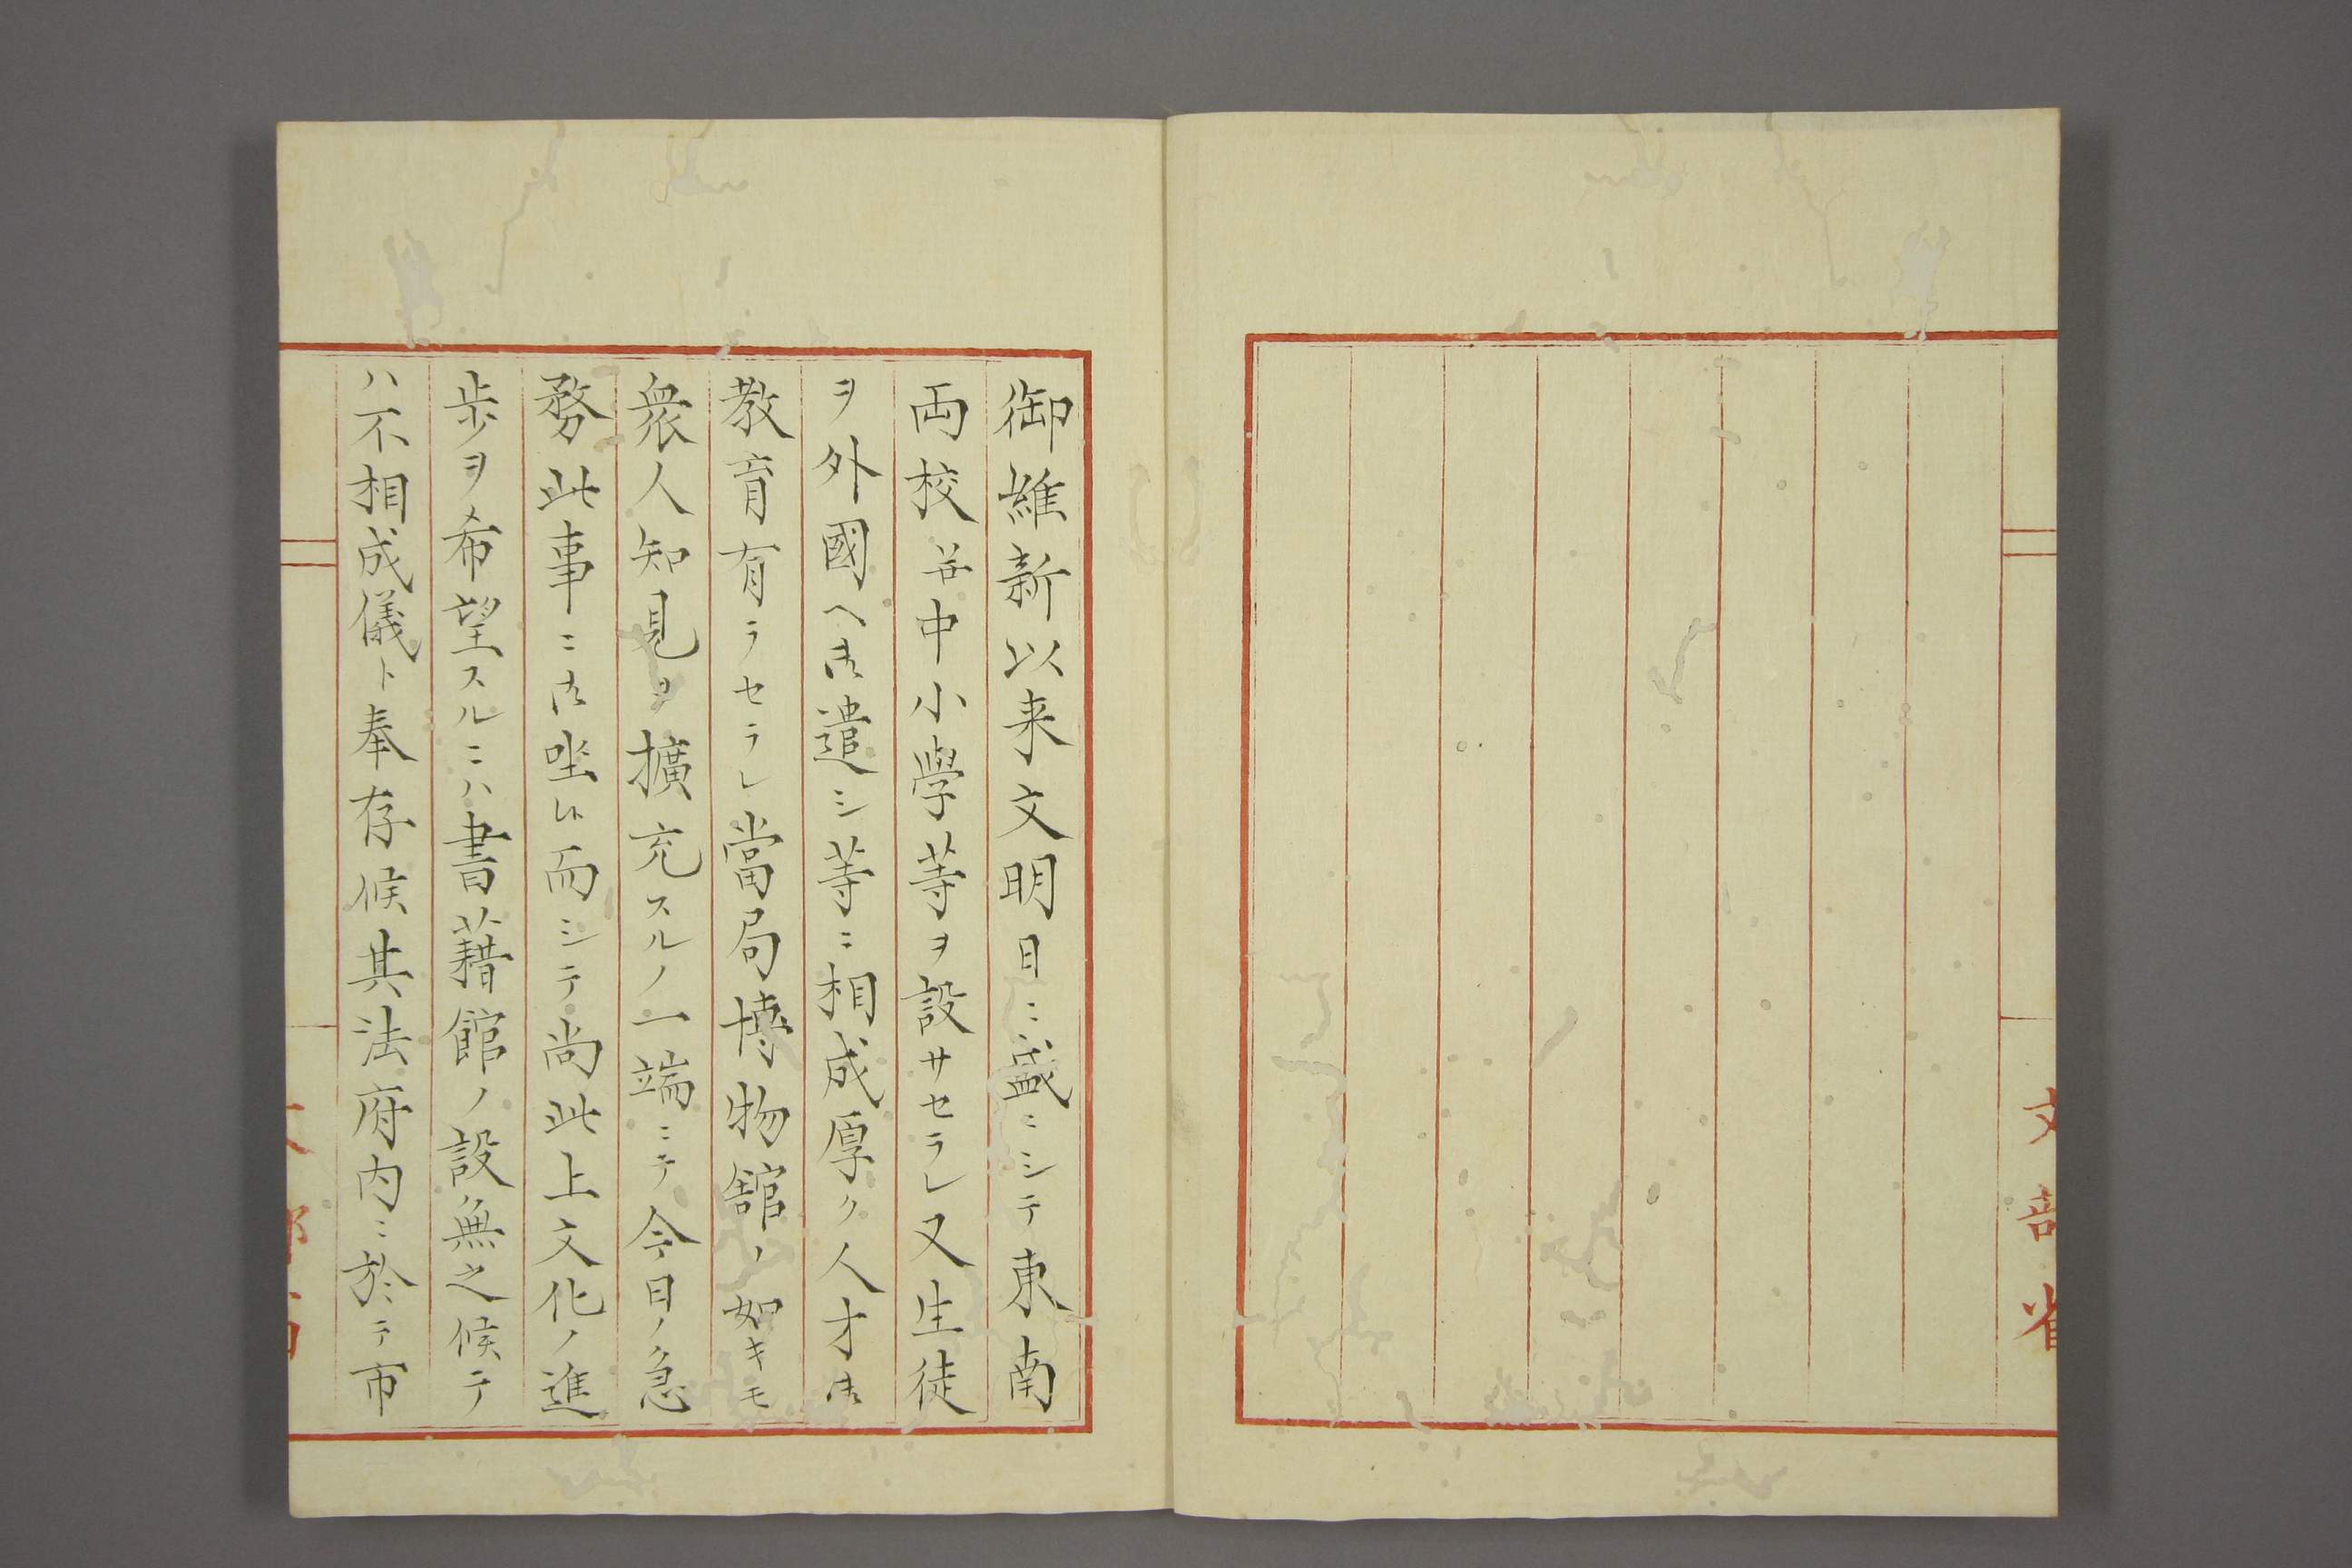 文部省
御維新以来文明日ニ盛ニシテ東南
両校並中小學等ヲ設サセラレ又生徒
ヲ外國ヘ御遣シ等ニ相成厚ク人才御
教育有ラセラレ當局博物館ノ如キモ
衆人知見ヲ擴充スルノ一端ニテ今日ノ急
務此事ニ御坐候而シテ尚此上文化ノ進
歩ヲ希望スルニハ書藉館ノ設無之候テ
ハ不相成儀ト奉存候其法府内ニ於テ市